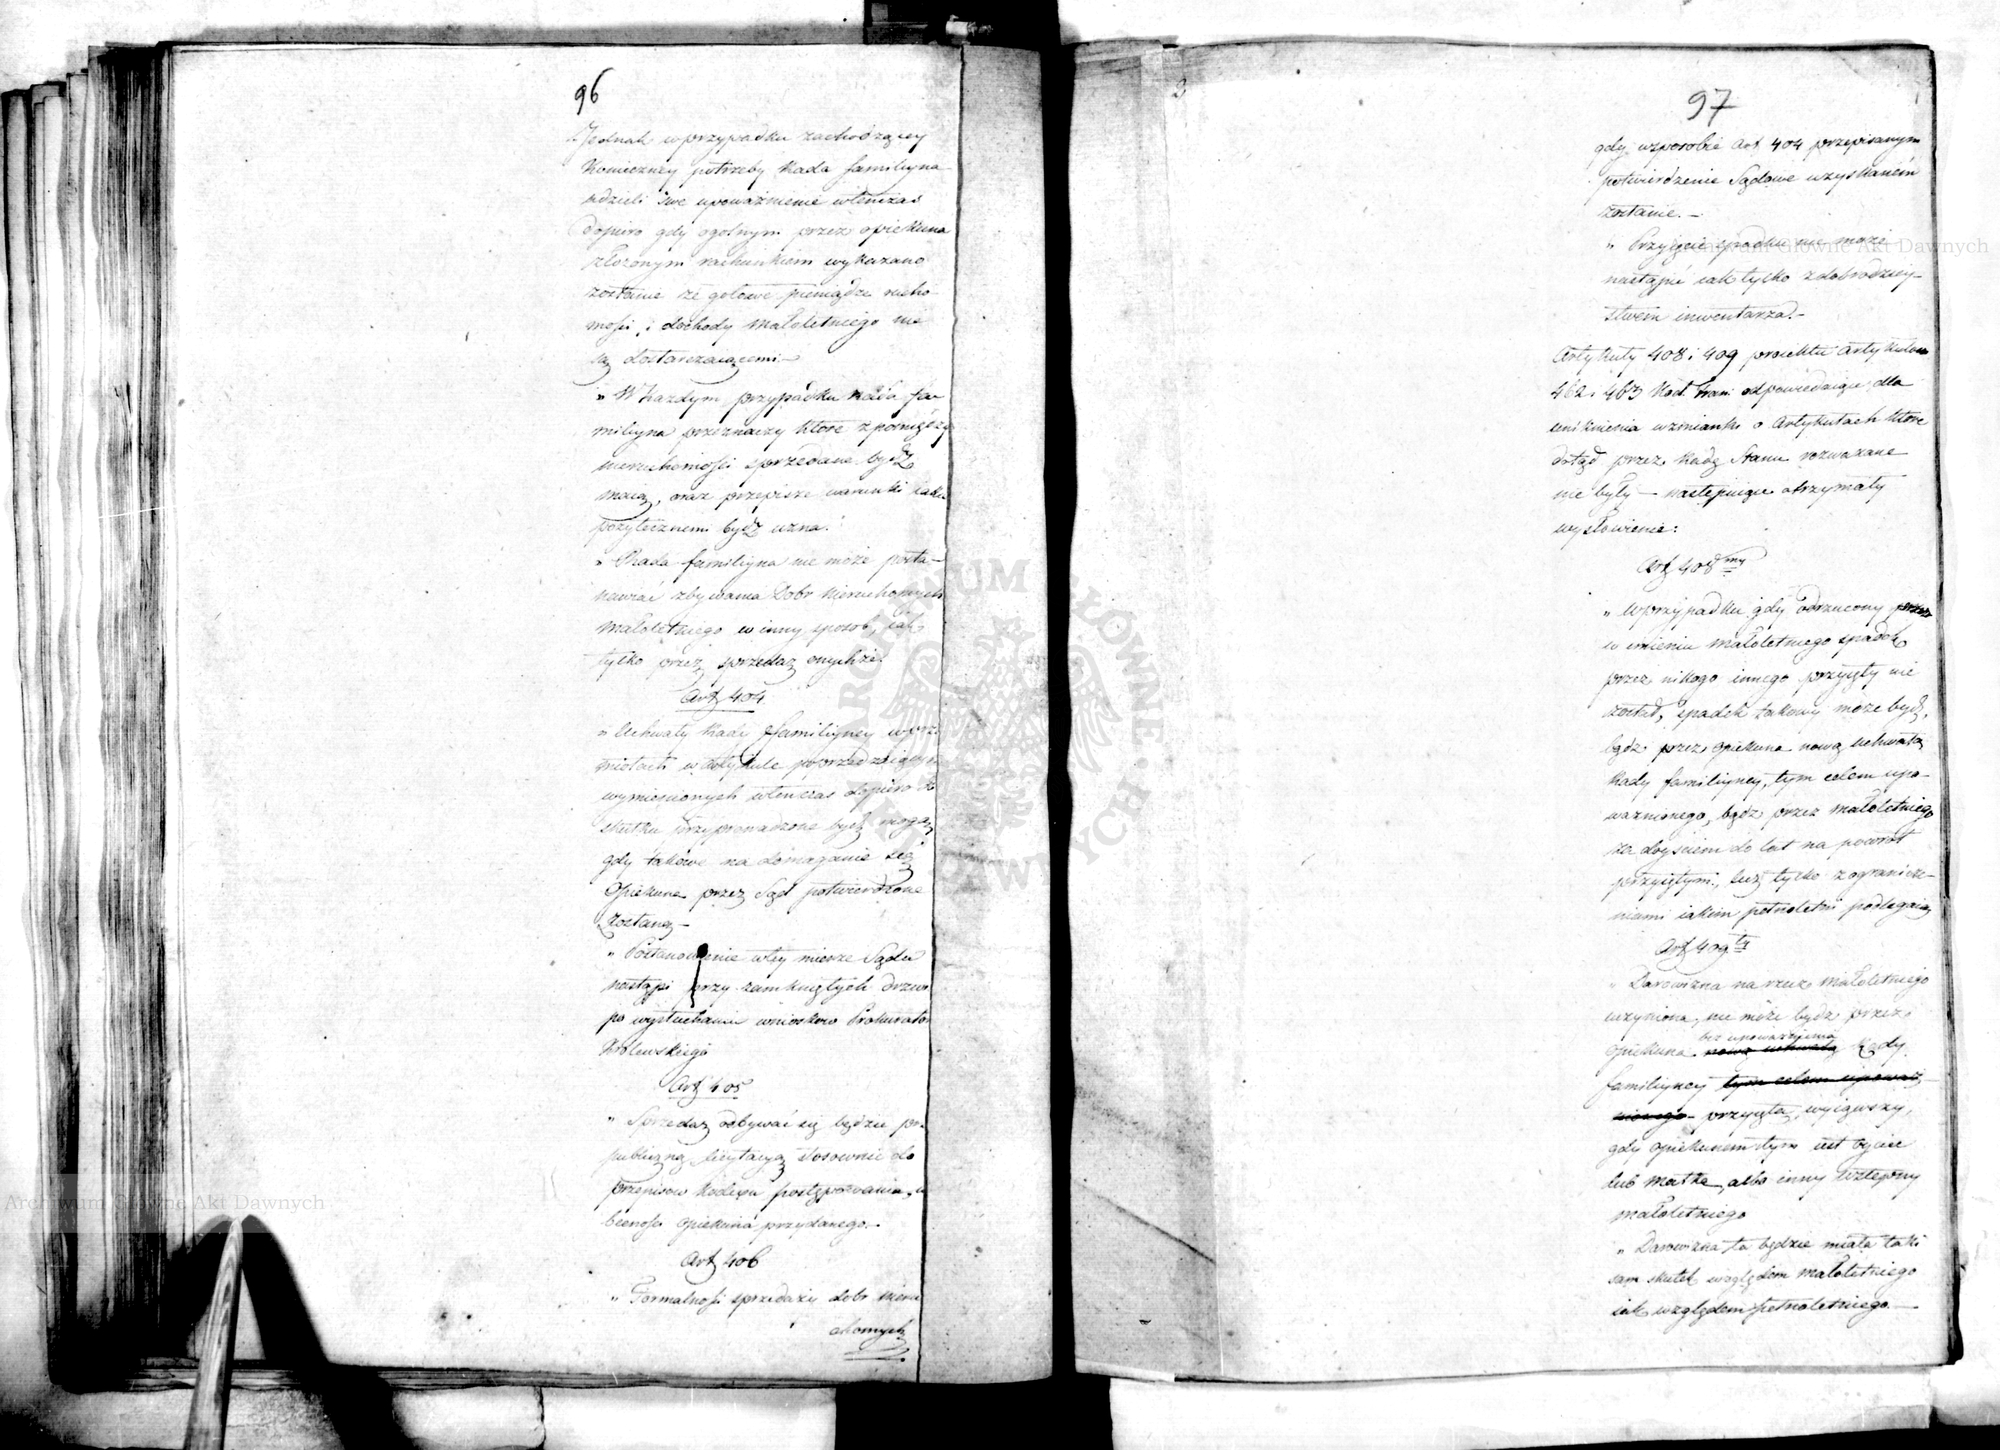 96
Jednak w przypadku zachodzącey
Konieczney potrzeby Rada familiyna
udzieli swe upoważnienie wtenczas
dopiero gdy ogolnym przez opiekuna
złożonym rachunkiem wykazano
zostanie że gotowe pieniądze rucho-
mości, i dochody małoletniego nie
są dostarczaiącemi —
„ W każdym przypadku Rada fa-
miliyna przeznaczy które z pomiędzy
nieruchomości sprzedane bydź
maią, oraz przepisze warunki iakie
pożytecznemi bydź uzna.
„ Rada familiyna nie może posta-
nawiać zbywania Dobr nieruchomych
małoletniego w inny sposob, iak
tylko przez sprzedaż onychże.
Art 404
„ Uchwały Rady familiyney w prze
miotach w Artykule poprzedzaiącym
wymienionych wtenczas dopiero do
skutku przyprowadzone bydź mogą,
gdy takowe na domaganie się
Opiekuna przez Sąd potwierdzone
Zostaną —
„ Postanowienie w tey mierze Sądu
nastąpi przy zamkniętych drzwi
po wysłuchaniu wniosków Prokurator
Królewskiego
Art 405
„ Sprzedaż odbywać się będzie prz
publiczną licytacyą stosownie do
przepisow kodexu postępowania, w
becności Opiekuna przydanego. —
Art 406
„ Formalności sprzedaży dobr nieru
chomych
97
gdy w sposobie Art 404 przepisanym
potwierdzenie Sądowe uzyskaném
zostanie. —
„ Przyięcie spadku nie może
nastąpić iak tylko z dobrodziey-
stwem inwentarza. —
Artykuły 408 i 409 proiektu Artykułom
462 i 463 Kod. Fran: odpowiedaiące dla
uniknienia wzmianki o Artykułach które
dotąd przez Radę Stanu rozważane
nie były — następuiące otrzymały
wysłowienie:
Art 408my
„ W przypadku gdy odrzucony przez
w imieniu małoletniego spadek
przez nikogo innego przyięty nie
został, spadek takowy może bydź,
bądź przez opiekuna nową uchwałą
Rady familiyney, tym celem upo-
ważnionego, bądź przez małoletniego
za doyściem do lat na powrót
przyiętym, lecz tylko z ogranicze-
niami iakim pełnoletni podlegaią
Art 409ty
„ Darowizna na rzecz małoletniego
uczyniona, nie może bydź przez
bez upoważnienia
opiekuna nową uchwałą Rady
familiyney tym celem upoważ-
nionego — przyięta, wyiąwszy,
gdy opiekunem tym iest oyciec
lub matka, albo inny wstępny
małoletniego
„ Darowizna ta będzie miała taki
sam skutek względem małoletniego
iak względem pełnoletniego. —
Archiwum Główne Akt Dawnych
Archiwum Główne Akt Dawnych
ARCHIWUM GŁÓWNE AKT DAWNYCH